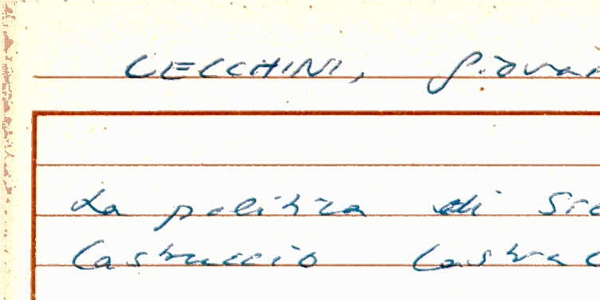 CECCHINI, Giovan
La politica di
Castruccio Castrac